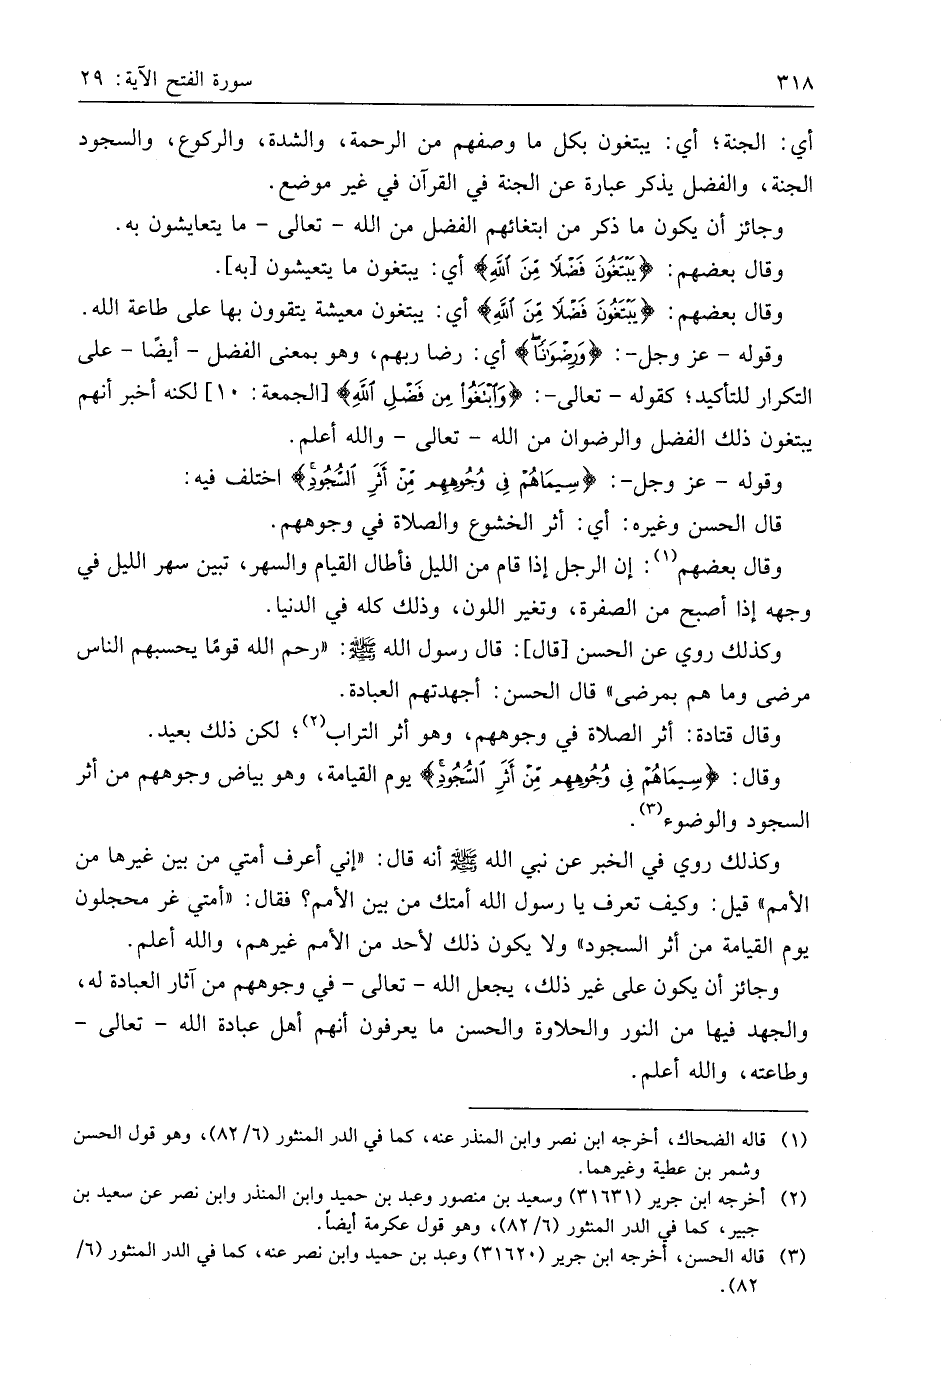 ٣١٨
سورة الفتح الآية: ٢٩
أي: الجنة؛ أي: يبتغون بكل ما وصفهم من الرحمة، والشدة، والركوع، والسجود
الجنة، والفضل يذكر عبارة عن الجنة في القرآن في غير موضع.
وجائز أن يكون ما ذكر من ابتغائهم الفضل من الله - تعالى - ما يتعايشون به.
وقال بعضهم: ﴿يَبْتَغُونَ فَضْلًا مِّنَ ٱللَّهِ﴾ أي: يبتغون ما يتعيشون [به].
وقال بعضهم: ﴿يَبْتَغُونَ فَضْلًا مِّنَ ٱللَّهِ﴾ أي: يبتغون معيشة يتقوون بها على طاعة الله.
وقوله - عز وجل-: ﴿وَرِضْوَٰنًاۖ﴾ أي: رضا ربهم، وهو بمعنى الفضل - أيضًا - على
التكرار للتأكيد؛ كقوله - تعالى-: ﴿وَٱبْتَغُوا۟ مِن فَضْلِ ٱللَّهِ﴾ [الجمعة: ١٠] لكنه أخبر أنهم
يبتغون ذلك الفضل والرضوان من الله - تعالى - والله أعلم.
وقوله - عز وجل-: ﴿سِيمَاهُمْ فِى وُجُوهِهِم مِّنْ أَثَرِ ٱلسُّجُودِۚ﴾ اختلف فيه:
قال الحسن وغيره: أي: أثر الخشوع والصلاة في وجوههم.
وقال بعضهم(١): إن الرجل إذا قام من الليل فأطال القيام والسهر، تبين سهر الليل في
وجهه إذا أصبح من الصفرة، وتغير اللون، وذلك كله في الدنيا.
وكذلك روي عن الحسن [قال]: قال رسول الله ﷺ: «رحم الله قومًا يحسبهم الناس
مرضى وما هم بمرضى» قال الحسن: أجهدتهم العبادة.
وقال قتادة: أثر الصلاة في وجوههم، وهو أثر التراب(٢)؛ لكن ذلك بعيد.
وقال: ﴿سِيمَاهُمْ فِى وُجُوهِهِم مِّنْ أَثَرِ ٱلسُّجُودِۚ﴾ يوم القيامة، وهو بياض وجوههم من أثر
السجود والوضوء(٣).
وكذلك روي في الخبر عن نبي الله ﷺ أنه قال: «إني أعرف أمتي من بين غيرها من
الأمم» قيل: وكيف تعرف يا رسول الله أمتك من بين الأمم؟ فقال: «أمتي غر محجلون
يوم القيامة من أثر السجود» ولا يكون ذلك لأحد من الأمم غيرهم، والله أعلم.
وجائز أن يكون على غير ذلك، يجعل الله - تعالى - في وجوههم من آثار العبادة له،
والجهد فيها من النور والحلاوة والحسن ما يعرفون أنهم أهل عبادة الله - تعالى -
وطاعته، والله أعلم.
(١) قاله الضحاك، أخرجه ابن نصر وابن المنذر عنه، كما في الدر المنثور (٨٢/٦)، وهو قول الحسن
وشمر بن عطية وغيرهما.
(٢) أخرجه ابن جرير (٣١٦٣١) وسعيد بن منصور وعبد بن حميد وابن المنذر وابن نصر عن سعيد بن
جبير، كما في الدر المنثور (٨٢/٦)، وهو قول عكرمة أيضاً.
(٣) قاله الحسن، أخرجه ابن جرير (٣١٦٢٠) وعبد بن حميد وابن نصر عنه، كما في الدر المنثور (٦/
٨٢).